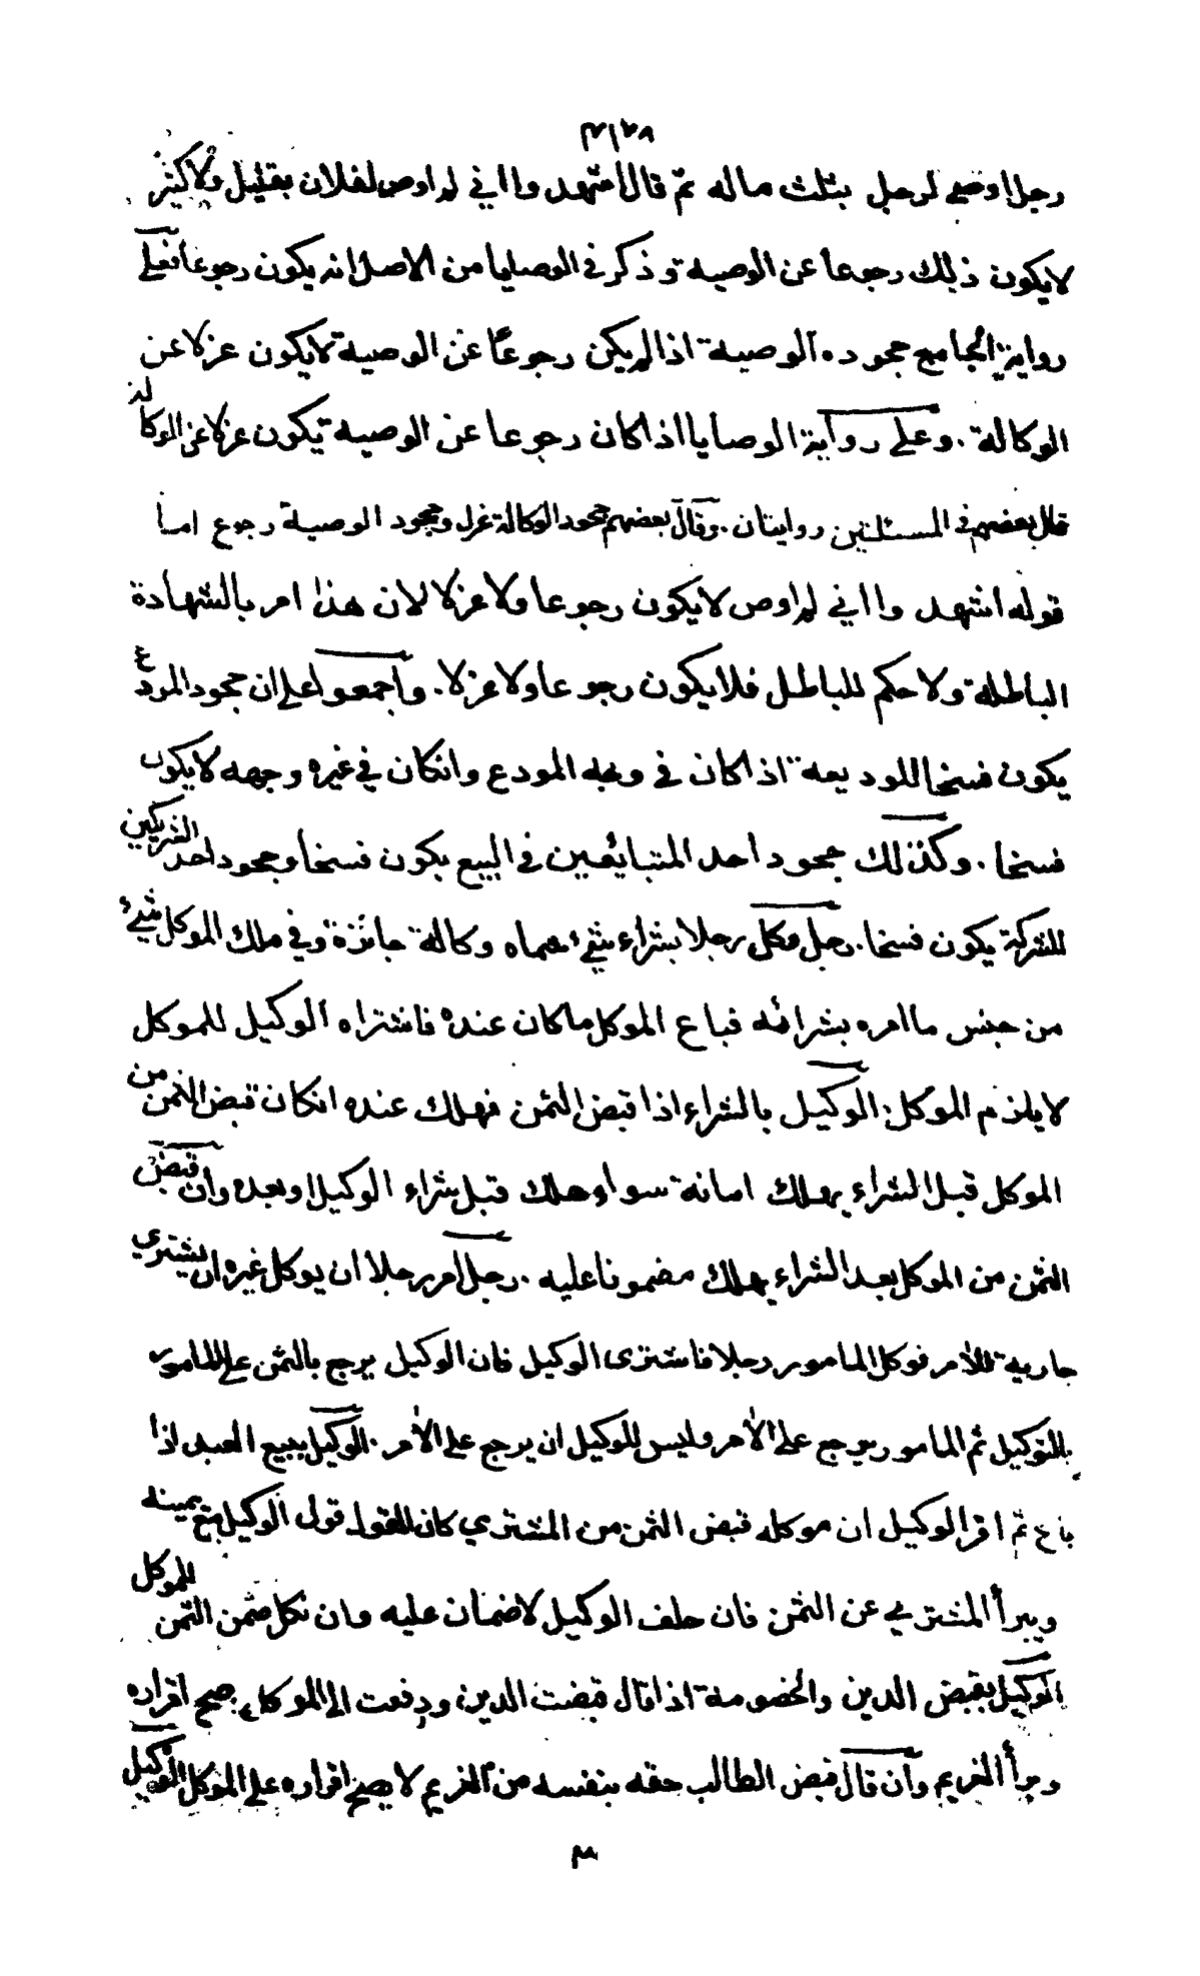 ٣١٢٨
رجل اوصى لرجل بثلث ماله ثم قال اشهدوا اني لم اوص لفلان بقليل ولا كثير
لا يكون ذلك رجوعا عن الوصية وذكر في الوصايا من الاصل انه يكون رجوعا فعلى
رواية الجامع جحوده الوصية اذا لم يكن رجوعا عن الوصية لا يكون عزلا عن
الوكالة . وعلى رواية الوصايا اذا كان رجوعا عن الوصية يكون عزلا عن الوكالة
قال بعضهم في المسئلتين روايتان . وقال بعضهم جحود الوكالة عزل وجحود الوصية رجوع اما
قوله اشهدوا اني لم اوص لا يكون رجوعا ولا عزلا لان هذا امر بالشهادة
الباطلة ولا حكم للباطل فلا يكون رجوعا ولا عزلا . واجمعوا على ان جحود المودع
يكون فسخا للوديعة اذا كان في وجه المودع وان كان في غيره وجهه لا يكون
فسخا . وكذلك جحود احد المتبائعين في البيع يكون فسخا وجحود احد الشريكين
للشركة يكون فسخا . رجل وكل رجلا بشراء شيء سماه وكالة جائزة وفي ملك الموكل شيء
من جنس ما امره بشرائه فباع الموكل ما كان عنده فاشتراه الوكيل للموكل
لا يلزم الموكل . الوكيل بالشراء اذا قبض الثمن فهلك عنده ان كان قبض الثمن من
الموكل قبل الشراء يهلك امانة سواء هلك قبل شراء الوكيل او بعده وان قبض
الثمن من الموكل بعد الشراء يهلك مضمونا عليه . رجل امر رجلا ان يوكل غيره ان يشتري
جارية للآمر فوكل المامور رجلا فاشترى الوكيل فان الوكيل يرجع بالثمن على المامور
بالتوكيل ثم المامور يرجع على الآمر وليس للوكيل ان يرجع على الآمر . الوكيل ببيع العبد اذا
باع ثم اقر الوكيل ان موكله قبض الثمن من المشتري كان القول قول الوكيل مع يمينه
ويبرأ المشتري عن الثمن فان حلف الوكيل لا ضمان عليه وان نكل ضمن الثمن للموكل
الوكيل بقبض الدين والخصومة اذا قال قبضت الدين ودفعت الى الموكل صح اقراره
وبرأ الغريم وان قال قبض الطالب حقه بنفسه من الغريم لا يصح اقراره على الموكل الوكيل
٣